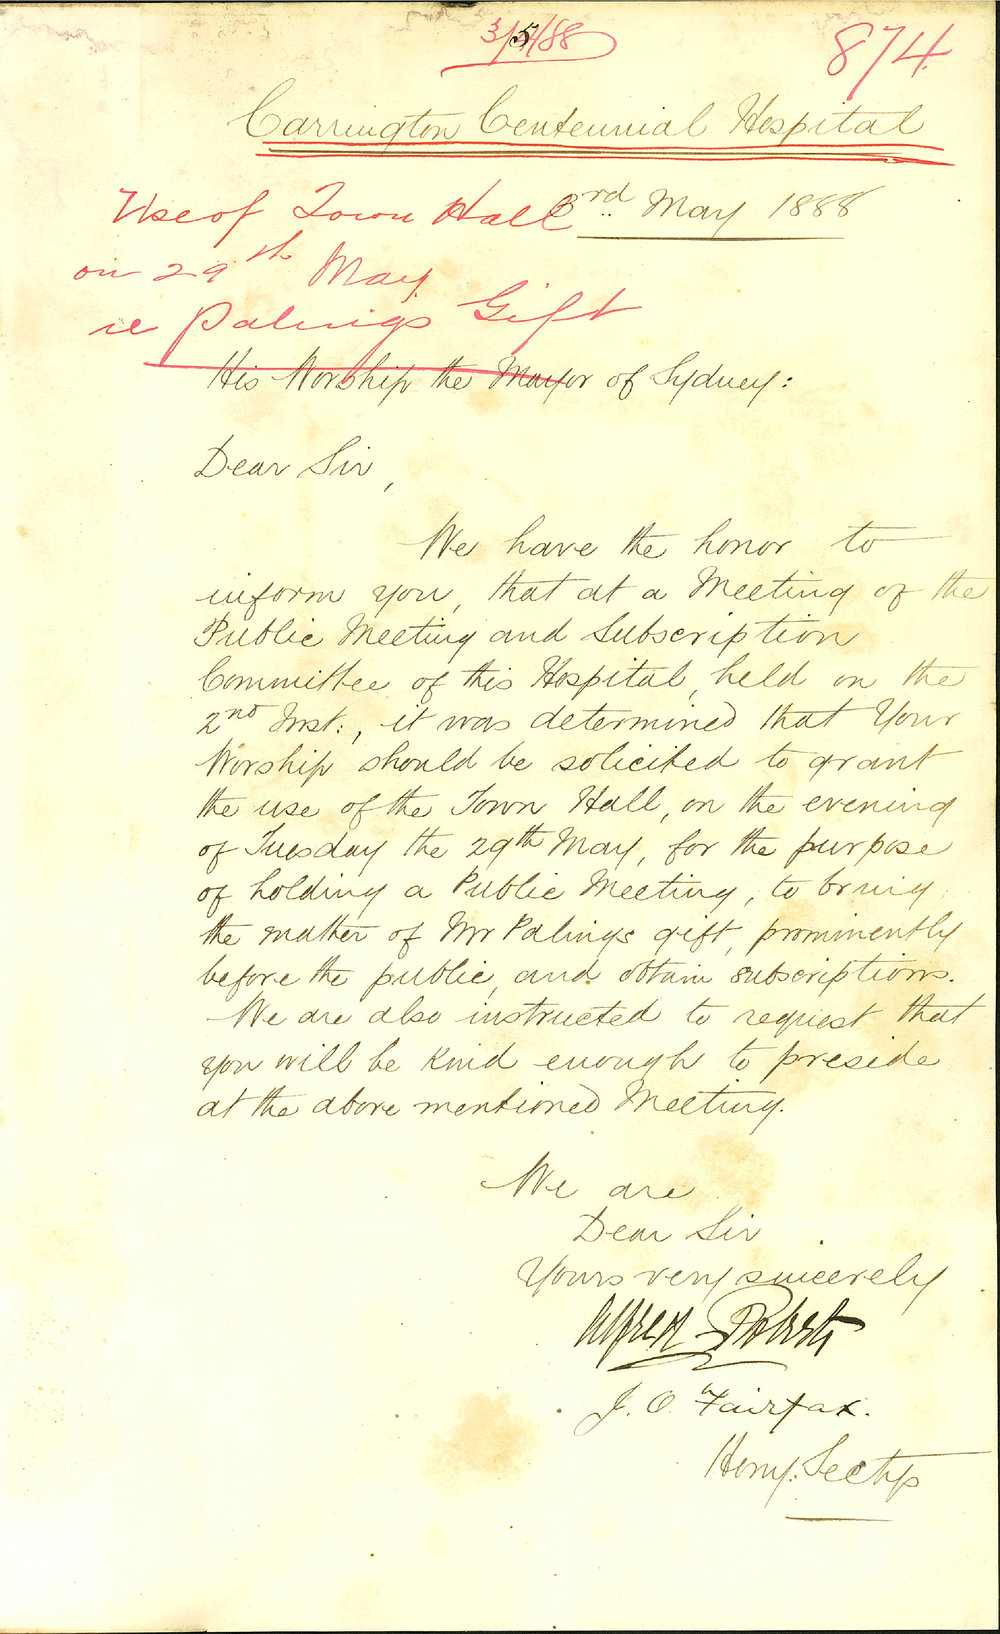 3/5/88
874
Carrington Centennial Hospital
3rd May 1888
Use of Town Hall
on 29th May
re Palings Gift
His Worship the Mayor of Sydney:
Dear Sir,
We have the honor to
inform you, that at a Meeting of the
Public Meeting and Subscription
Committee of this Hospital, held on the
2nd Inst:, it was determined that Your
Worship should be solicited to grant
the use of the Town Hall, on the evening
of Tuesday the 29th May, for the purpose
of holding a Public Meeting, to bring
the matter of Mr Palings gift, prominently
before the public, and obtain subscriptions.
We are also instructed to request that
you will be kind enough to preside
at the above mentioned Meeting.
We are
Dear Sir
Yours very sincerely
Alfred Roberts
J. O. Fairfax.
Hony. Sectys